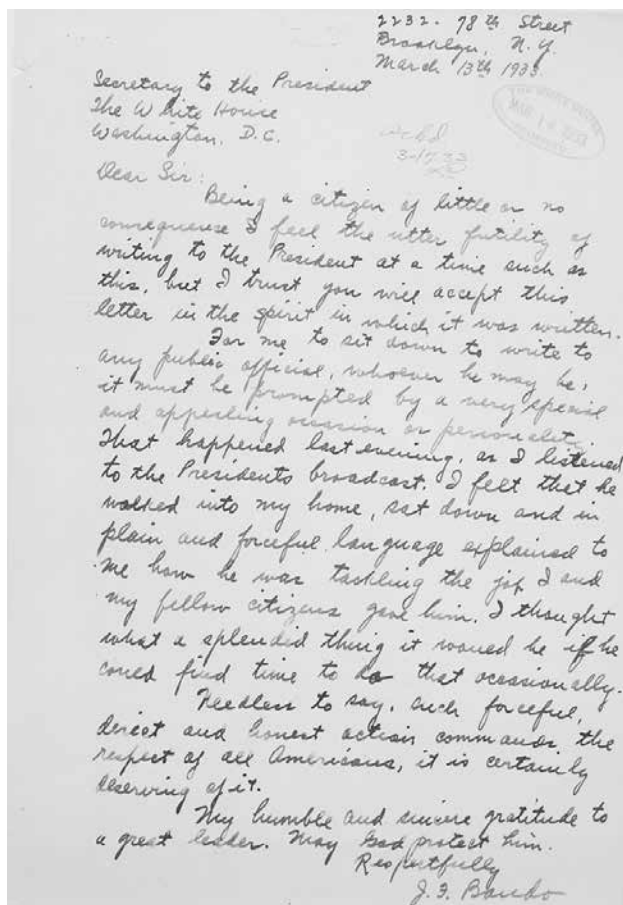 2232 - 78th Street
Brooklyn, N.Y.
March 13th 1933.
Secretary to the President
The White House
Washington, D.C.
THE WHITE HOUSE
MAR 14 1933
RECEIVED
ackd
3-17-33
Dear Sir:
Being a citizen of little or no
consequense I feel the utter futility of
writing to the President at a time such as
this, but I trust you will accept this
letter in the spirit in which it was written.
For me to sit down to write to
any public official, whoever he may be,
it must be prompted by a very special
and appealing occasion or personality.
That happened last evening, as I listened
to the Presidents broadcast. I felt that he
walked into my home, sat down and in
plain and forceful language explained to
me how he was tackling the job I and
my fellow citizens gave him. I thought
what a splendid thing it would be if he
could find time to do that ocassionally.
Needless to say, such forceful,
direct and honest action commands the
respect of all Americans, it is certainly
deserving of it.
My humble and sincere gratitude to
a great leader. May God protect him.
Respectfully
J. F. Bando